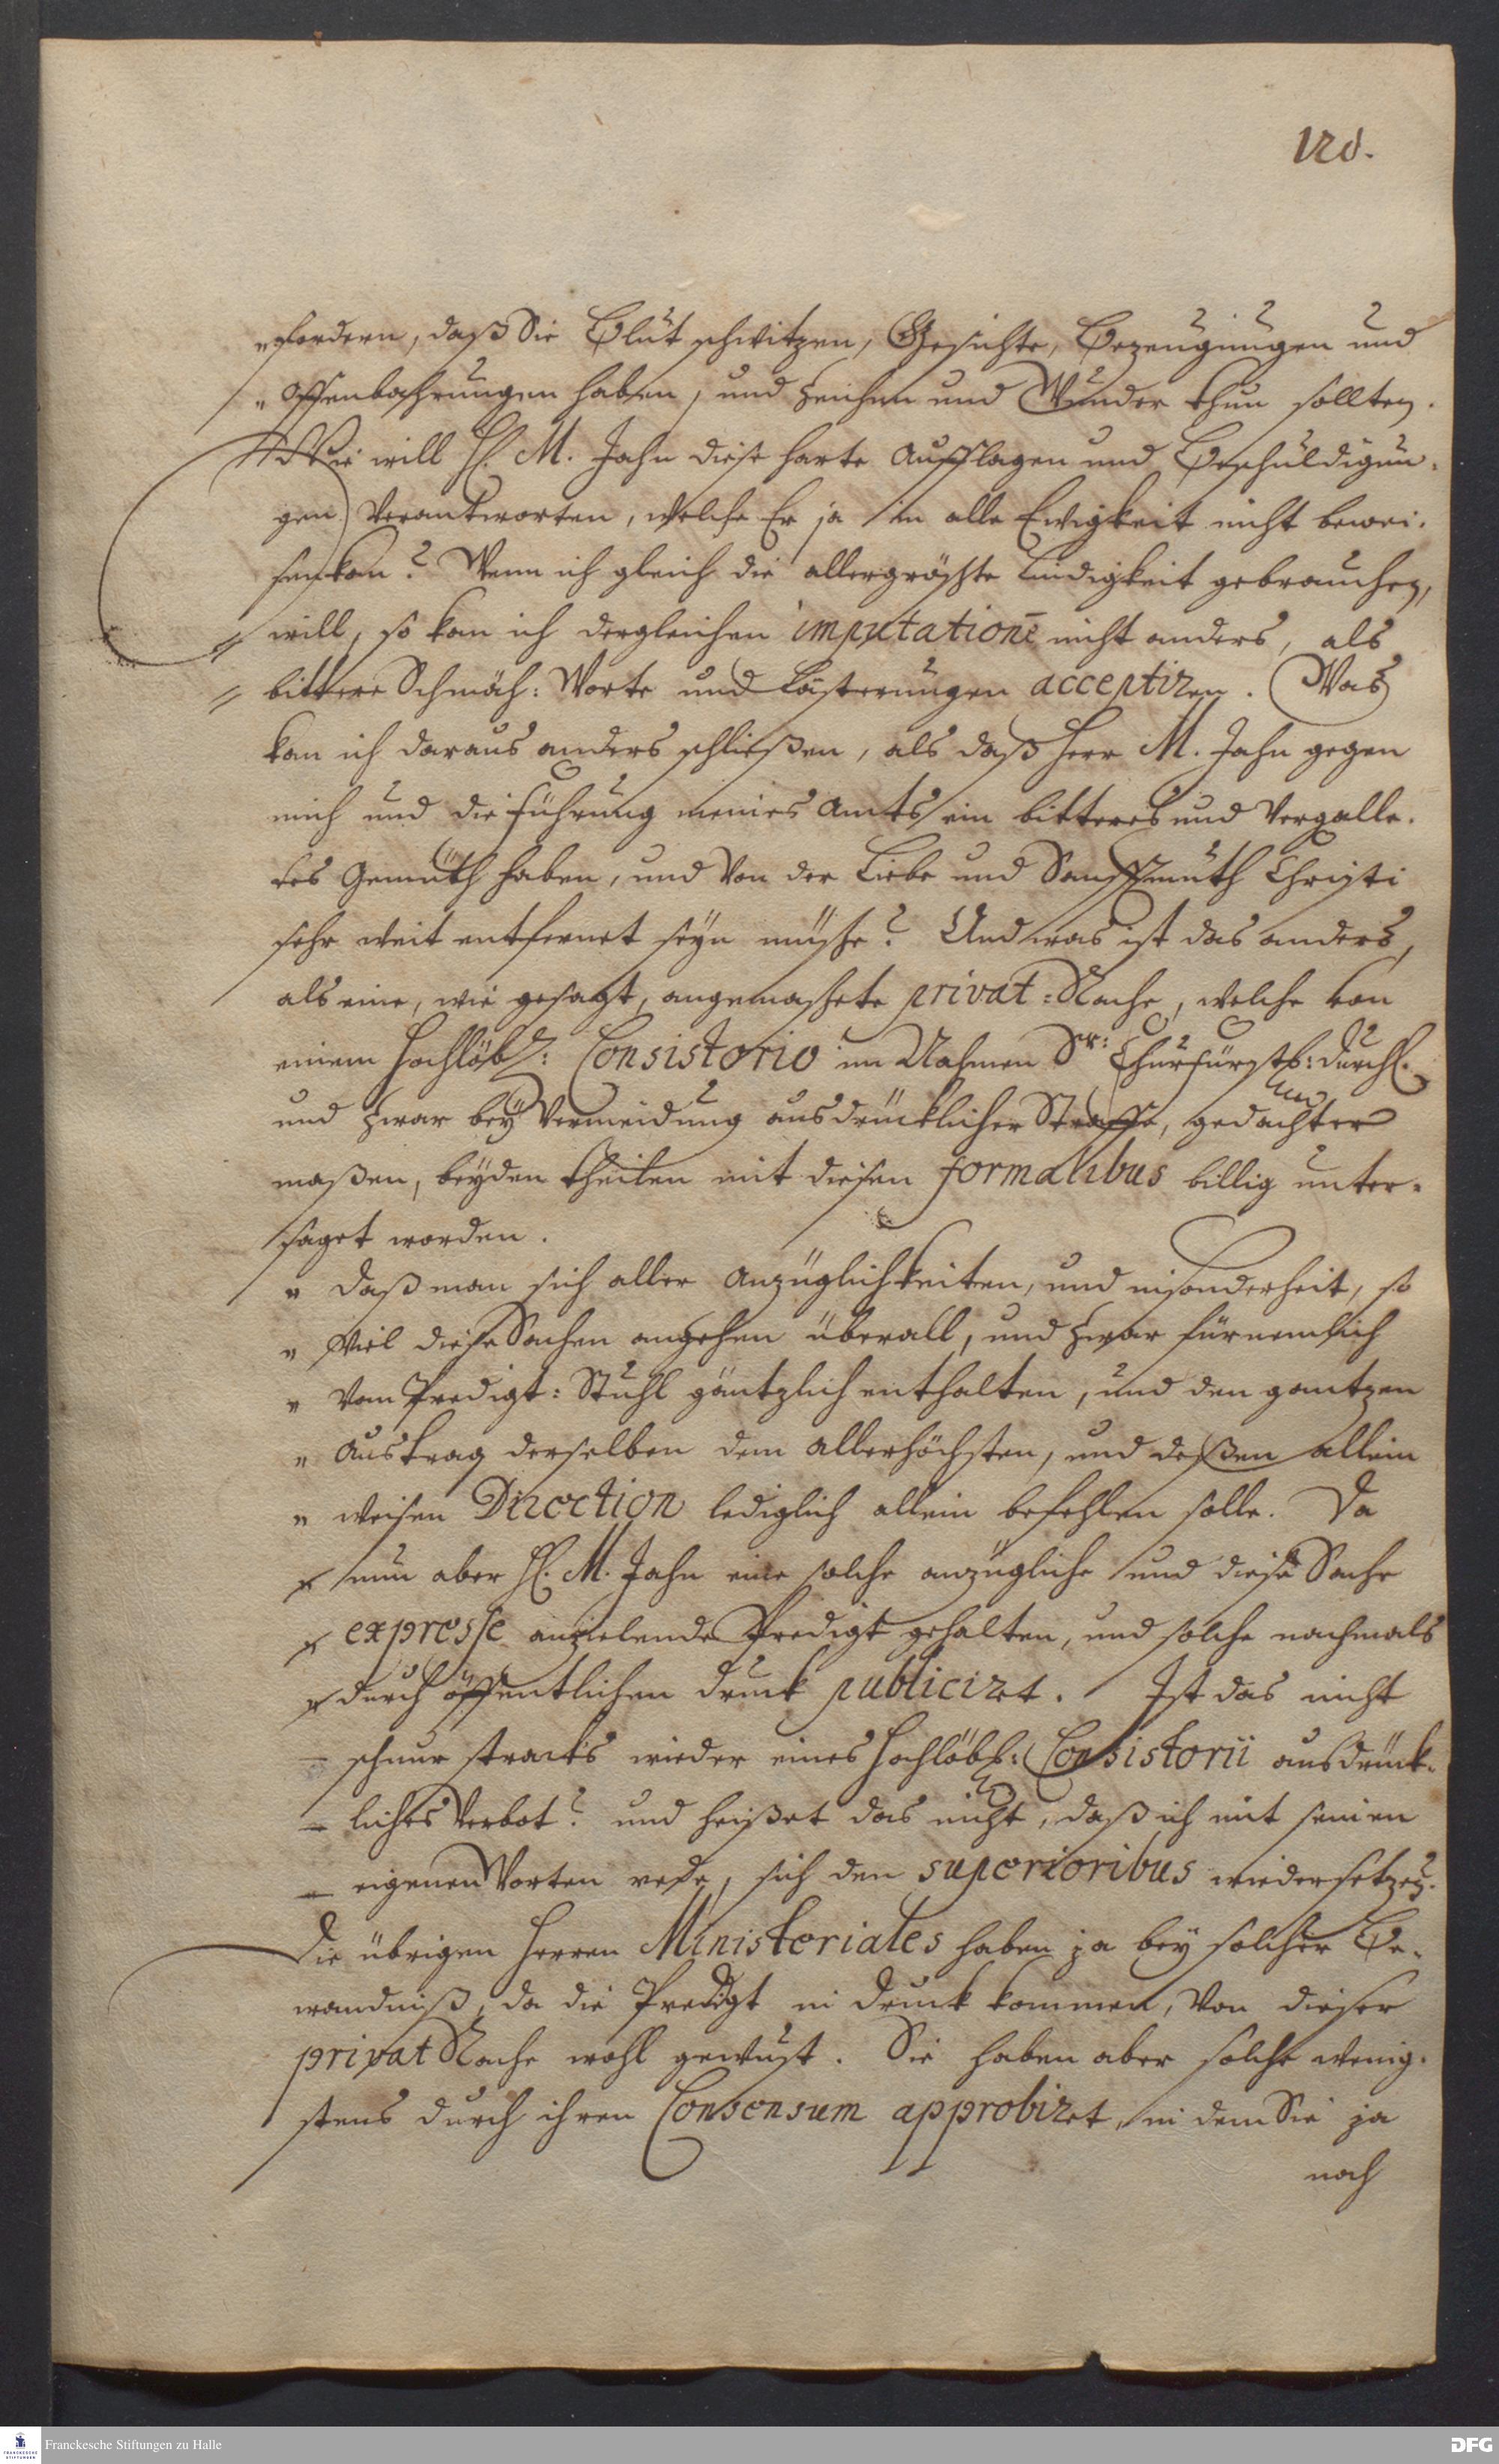 120.
„ fordern, daß Sie Blut schwitzen, Gesichte, Bezeugungen und
„ Offenbahrungen haben, und Zeichen und Wunder thun sollten.
Wie will H. M. Jahn diese harte Aufflagen und Beschuldigun-
gen verantworten, welche Er ja in alle Ewigkeit nicht bewei-
sen kan? Wenn ich gleich die allergröste Lindigkeit gebrauchen
will, so kan ich dergleichen imputationē nicht anders, als
bittere Schmäh-Worte und Lästerungen acceptiren. Was
kan ich daraus anders schließen, als daß Herr M. Jahn gegen
mich und die Führung meines Amts ein bitteres und vergalle-
tes Gemüth haben, und von der Liebe und Sanfftmuth Christi
sehr weit entfernet seyn müsse? Und was ist das anders,
als eine, wie gesagt, angemaßete privat-Rache, welche von
einem Hochlöbl: Consistorio im Nahmen Sr: Churfürstl: Durchl.
und zwar bey Vermeidung ausdrücklicher Straffe, gedachter
maßen, beyden Theilen mit diesen formalibus billig unter-
saget worden.
„ Daß man sich aller Anzüglichkeiten, und insonderheit, so
„ viel diese Sachen angehen überall, und zwar fürnemlich
„ vom Predigt-Stuhl gäntzlich enthalten, und den gantzen
„ Austrag derselben dem Allerhöchsten, und deßen allein
„ weisen Direction lediglich allein befehlen solle. Da
nun aber H. M. Jahn eine solche anzügliche und diese Sache
expresse anzielende Predigt gehalten, und solche nachmals
durch öffentlichen Druck publiciret. Ist das nicht
schnur stracks wieder eines Hochlöbl: Consistorii ausdrück-
liches Verbot? und heißet das nicht, daß ich mit seinen
eigenen Worten rede, sich den superioribus wiedersetzen.
Die übrigen Herren Ministeriales haben ja bey solcher Be-
wandniß, da die Predigt in Druck kommen, von dieser
privat Rache wohl gewust. Sie haben aber solche wenig-
stens durch ihren Consensum approbiret, in dem Sie ja
noch
Franckesche Stiftungen zu Halle
DFG